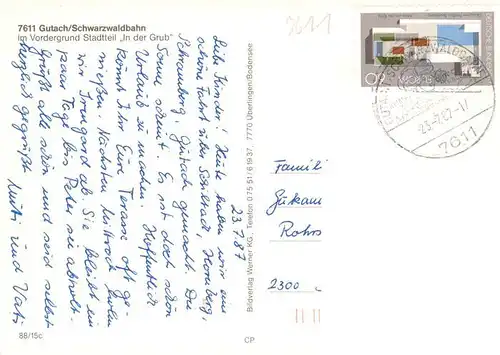 7611 Gutach/Schwarzwaldbahn
im Vordergrund Stadtteil „In der Grub"
7611
23.7.87
Liebe Kinder! Heute haben wir eine
schöne Fahrt über Schiltach, Hornberg,
Schramberg, Gutach gemacht. Die
Sonne scheint. Es ist doch schön
Urlaub zu machen. Hoffentlich
könnt Ihr Eure Terasse oft ge-
nießen. Nächsten Mittwoch holen
wir Irmgard ab. Sie bleibt ein
paar Tage bis Peter sie abholt.
Grüßt alle schön und seid selbst
herzlich gegrüßt
Mutti und Vati
88/15c
Bildverlag Werner KG, Telefon 0 75 51/6 19 37, 7770 Überlingen/Bodensee
CP
23.-7.87-17
7611
Famili
Rohrs
2300